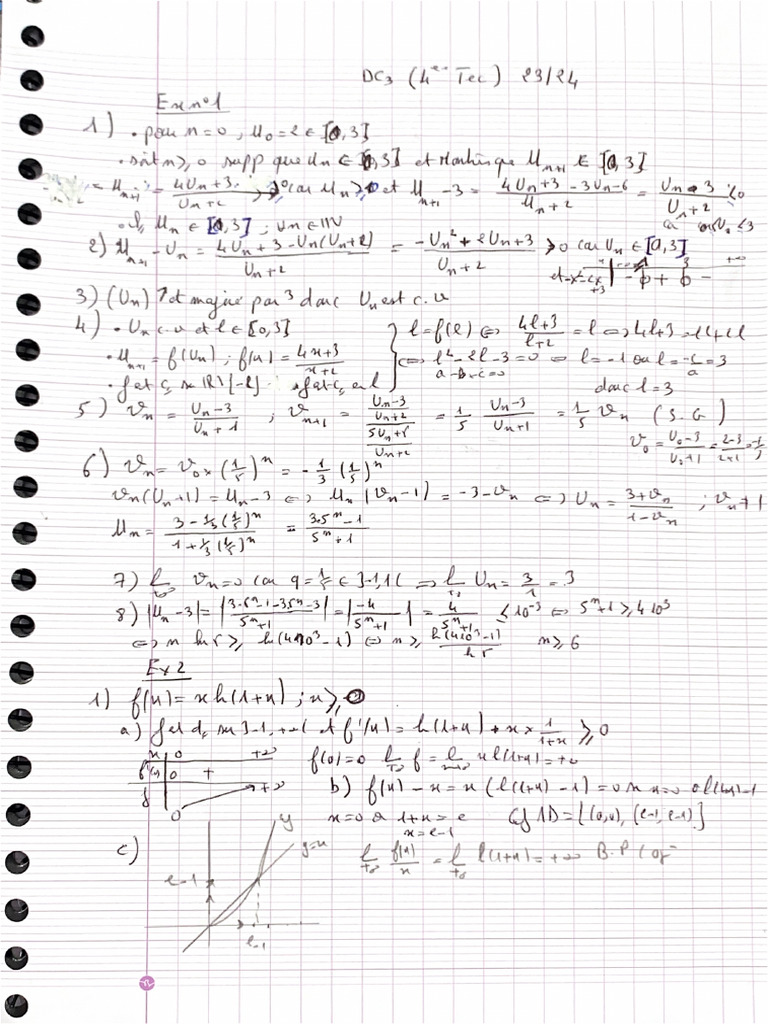 DC3 (4ème Tec) 23/24
Ex n°1
1) • pour n=0, U0=2 ∈ [0,3]
• soit n≥0 supp que Un ∈ [0,3] et Montrons que Un+1 ∈ [0,3]
Un+1 = (4Un+3)/(Un+2) ≥0 car Un ≥0 et Un+1 -3 = (4Un+3-3Un-6)/(Un+2) = (Un-3)/(Un+2) ≤0
Un ∈ [0,3] ; ∀n∈IN car Un≤3
2) Un+1 - Un = (4Un+3-Un(Un+2))/(Un+2) = (-Un²+2Un+3)/(Un+2) ≥0 car Un ∈ [0,3]
3) (Un) ↗ et majorée par 3 donc Un est c.v
4) • Un c.v et l ∈ [0,3]
• Un+1 = f(Un) ; f(x) = (4x+3)/(x+2)
• f est c, sur IR\{-2} • f est c, en l
l = f(l) ⇔ (4l+3)/(l+2) = l ⇔ 4l+3 = l²+2l
⇔ l²-2l-3=0 ⇔ l=-1 ou l=-c/a=3
a-b+c=0
donc l=3
5) Vn = (Un-3)/(Un+1) ; Vn+1 = ((Un-3)/(Un+2))/((5Un+5)/(Un+2)) = 1/5 (Un-3)/(Un+1) = 1/5 Vn (S.G)
V0 = (U0-3)/(U0+1) = (2-3)/(2+1) = -1/3
6) Vn = V0×(1/5)^n = -1/3 (1/5)^n
Vn(Un+1) = Un-3 ⇔ Un(Vn-1) = -3-Vn ⇔ Un = (3+Vn)/(1-Vn) ; Vn≠1
Un = (3-1/3(1/5)^n)/(1+1/3(1/5)^n) = (3.5^n-1)/(5^n+1)
7) lim Vn=0 car q=1/5 ∈ ]-1,1[ ⇒ lim Un = 3/1 = 3
8) |Un-3| = |(3.5^n-1-3.5^n-3)/(5^n+1)| = |-4/(5^n+1)| = 4/(5^n+1) ≤ 10^-3 ⇔ 5^n+1 ≥ 4 10^3
⇔ n ln5 ≥ ln(4.10^3-1) ⇔ n ≥ ln(4.10^3-1)/ln5 n ≥ 6
Ex 2
1) f(x) = x ln(1+x) ; x ≥ 0
a) f est d, sur ]-1,+∞[ et f'(x) = ln(1+x) + x × 1/(1+x) ≥ 0
x 0 +∞
f'(x) 0 +
f 0 +∞
f(0)=0 lim+∞ f = lim x ln(1+x) = +∞
b) f(x) - x = x(ln(1+x) - 1) = 0 ⇔ x=0 ou ln(1+x)=1
x=0 ou 1+x=e
x=e-1
Cf ∩ D = {(0,0), (e-1, e-1)}
c)
y
y=x
e-1
e-1
lim+∞ f(x)/x = lim+∞ ln(1+x) = +∞ B.P